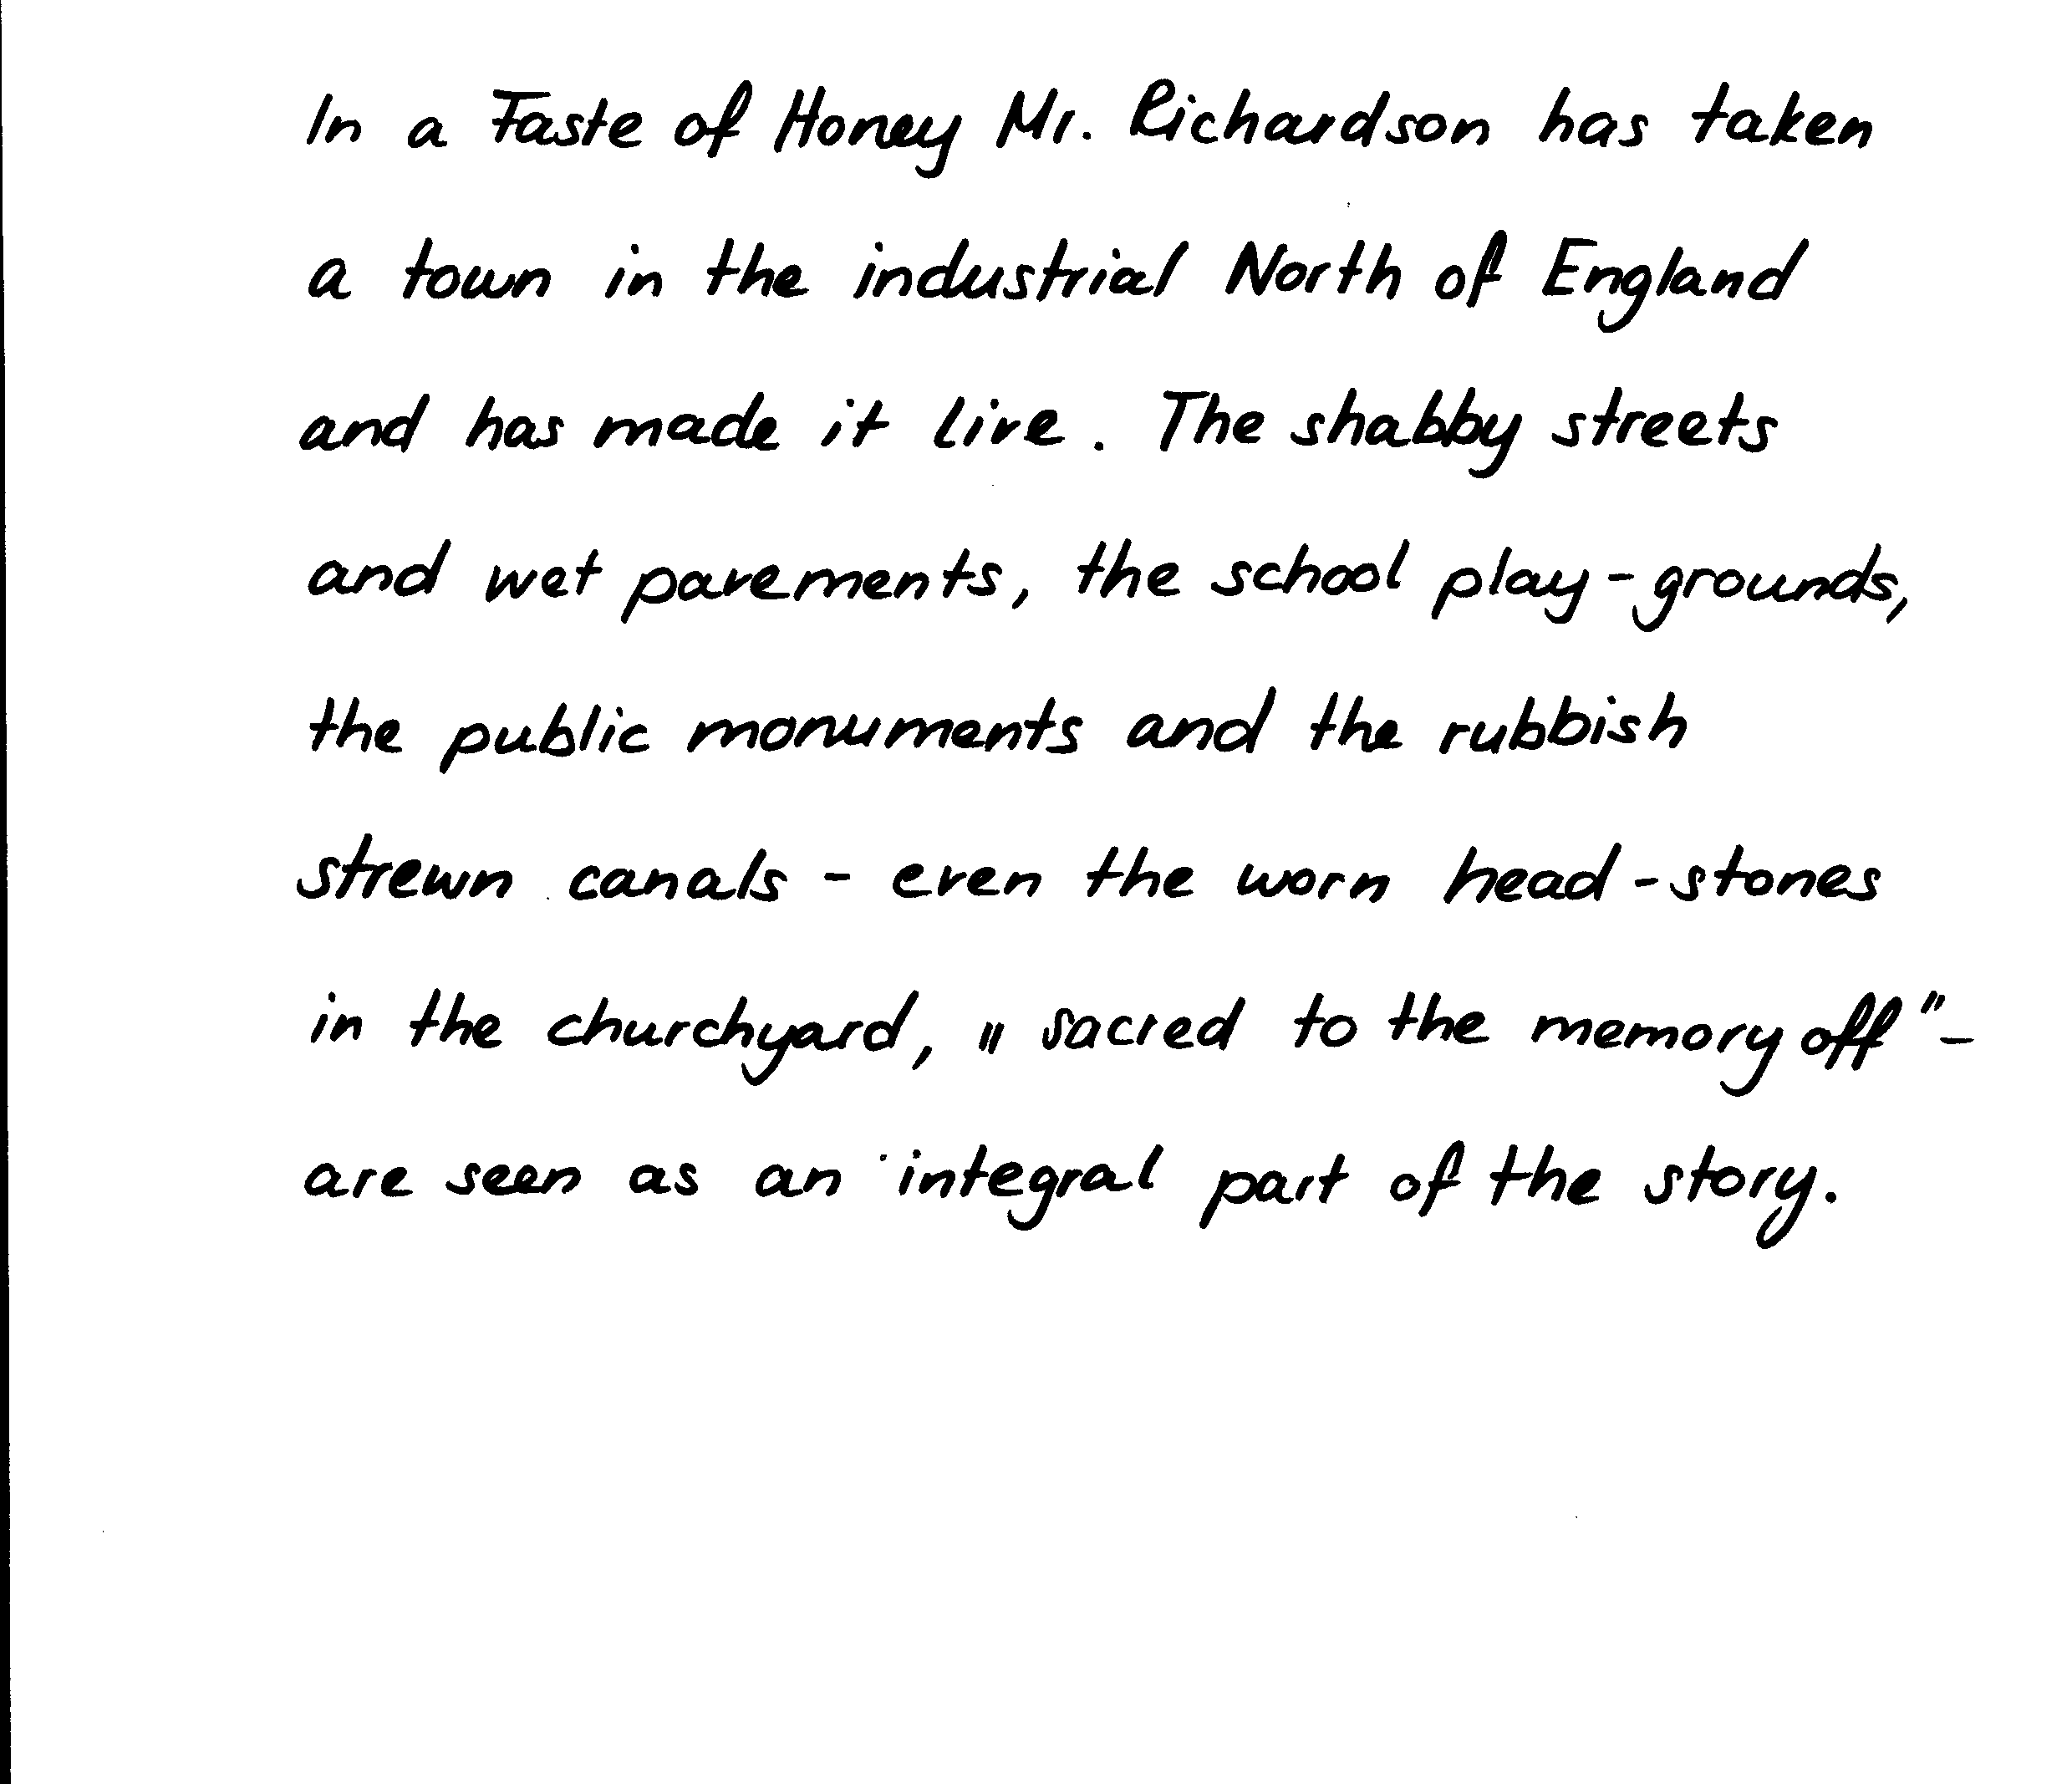 In a Taste of Honey Mr. Richardson has taken
a town in the industrial North of England
and has made it live. The shabby streets
and wet pavements, the school play-grounds,
the public monuments and the rubbish
strewn canals - even the worn head-stones
in the churchyard, „sacred to the memory off"-
are seen as an integral part of the story.